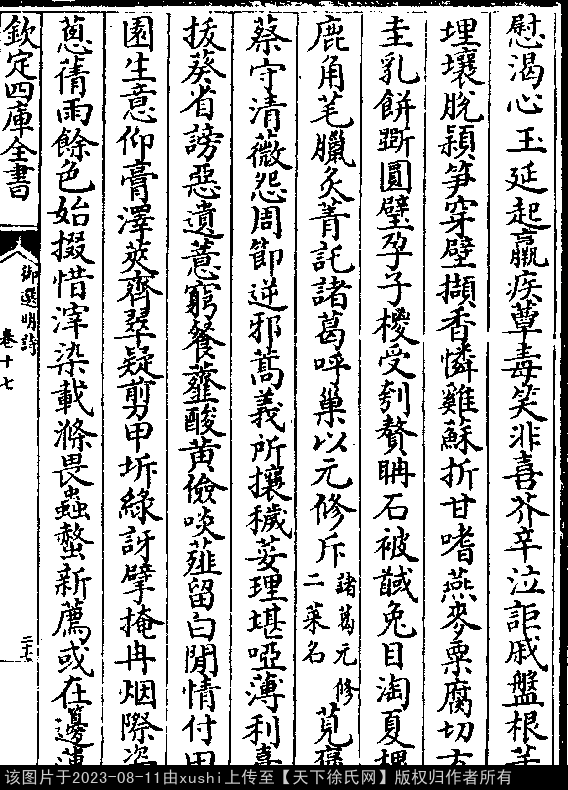 慰渴心玉延起羸疾蕈毒笑非喜芥辛泣詎戚盤根
埋壤脫穎笋穿壁擷香憐雞蘇折甘嗜燕麥粟腐切方
圭乳餅斲圓璧孕子㮨受刳贅聃石被馘兔目淘夏
鹿角芼臘炙菁託諸葛呼巢以元修斥諸葛元修二菜名莧
蔡守清薇怨周節逆邪蒿義所攘穢荽理堪啞薄利
拔葵省謗惡遺薏窮餐虀酸黄儉啖薤留白閒情付
園生意仰膏澤莢齊翠疑剪甲坼綠訝擘掩冉烟際姿
蔥蒨雨餘色始掇惜滓染載滌畏蟲螫新薦或在籩
欽定四庫全書
御選明詩
卷十七
二十七
该图片于2023-08-11由xushi上传至【天下徐氏网】版权归作者所有